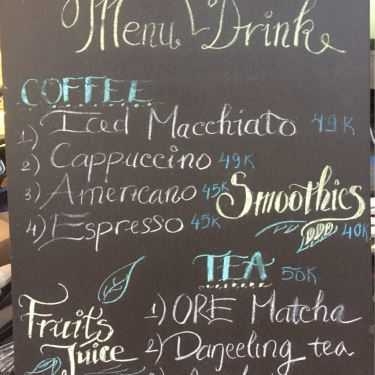 Menu Drink
COFFEE
1) Iced Macchiato 49K
2) Cappuccino 49K
3) Americano 45K
4) Espresso 45K
Smoothies
40K
TEA 50K
1) ORE Matcha
2) Darjeeling tea
Fruits
Juice